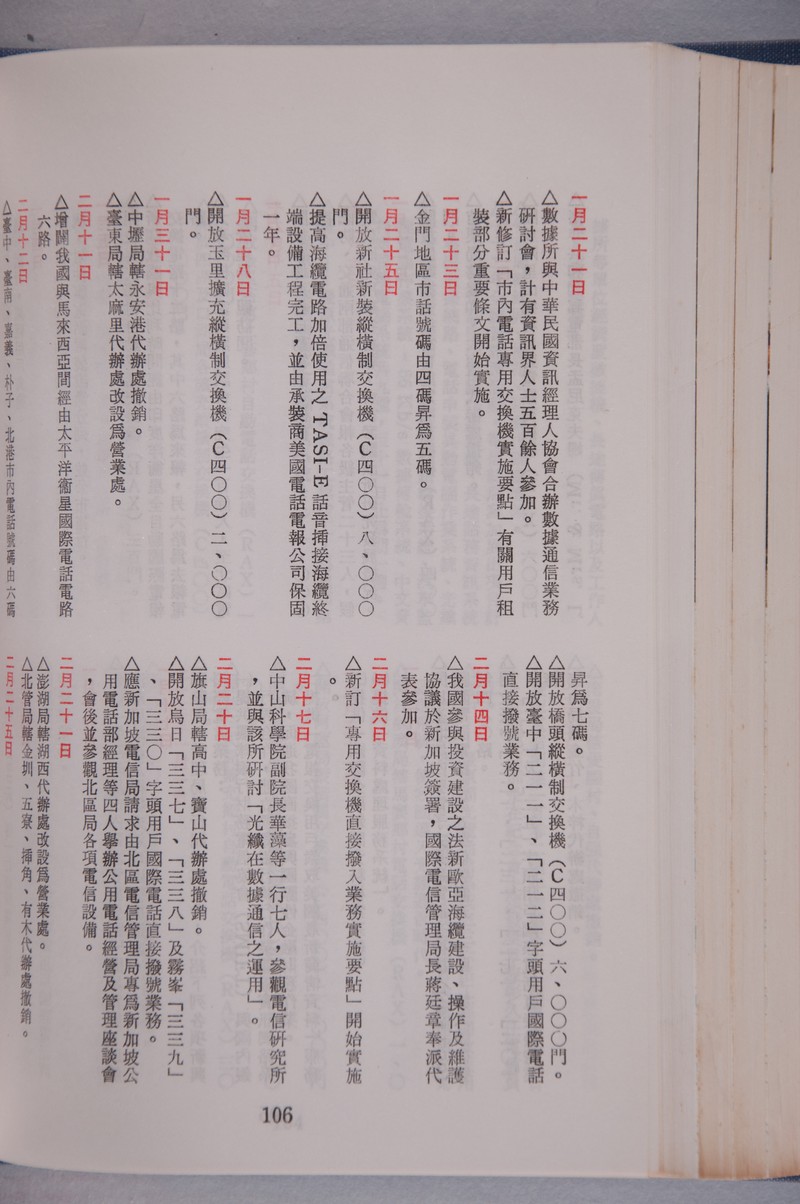 一月二十一日
△數據所與中華民國資訊經理人協會合辦數據通信業務
研討會，計有資訊界人士五百餘人參加。
△新修訂「市內電話專用交換機實施要點」有關用戶租
裝部分重要條文開始實施。
一月二十三日
△金門地區市話號碼由四碼昇爲五碼。
一月二十五日
△開放新社新裝縱橫制交換機（C四〇〇）八、〇〇〇
門。
△提高海纜電路加倍使用之 TASI-E 話音揷接海纜終
端設備工程完工，並由承裝商美國電話電報公司保固
一年。
一月二十八日
△開放玉里擴充縱橫制交換機（C四〇〇）二、〇〇〇
門。
一月三十一日
△中壢局轄永安港代辦處撤銷。
△臺東局轄太麻里代辦處改設爲營業處。
二月十一日
△增闢我國與馬來西亞間經由太平洋衞星國際電話電路
六路。
二月十二日
△臺中、臺南、嘉義、朴子、北港市內電話號碼由六碼
昇爲七碼。
△開放橋頭縱橫制交換機（C四〇〇）六、〇〇〇門。
△開放臺中「二一一」、「二一二」字頭用戶國際電話
直接撥號業務。
二月十四日
△我國參與投資建設之法新歐亞海纜建設、操作及維護
協議於新加坡簽署，國際電信管理局長蔣廷章奉派代
表參加。
二月十六日
△新訂「專用交換機直接撥入業務實施要點」開始實施
。
二月十七日
△中山科學院副院長華藻等一行七人，參觀電信研究所
，並與該所研討「光纖在數據通信之運用」。
二月二十日
△旗山局轄高中、寶山代辦處撤銷。
△開放烏日「三三七」、「三三八」及霧峯「三三九」
、「三三〇」字頭用戶國際電話直接撥號業務。
△應新加坡電信局請求由北區電信管理局專爲新加坡公
用電話部經理等四人舉辦公用電話經營及管理座談會
，會後並參觀北區局各項電信設備。
二月二十一日
△澎湖局轄湖西代辦處改設爲營業處。
△北管局轄金圳、五寮、揷角、有木代辦處撤銷。
二月二十五日
106